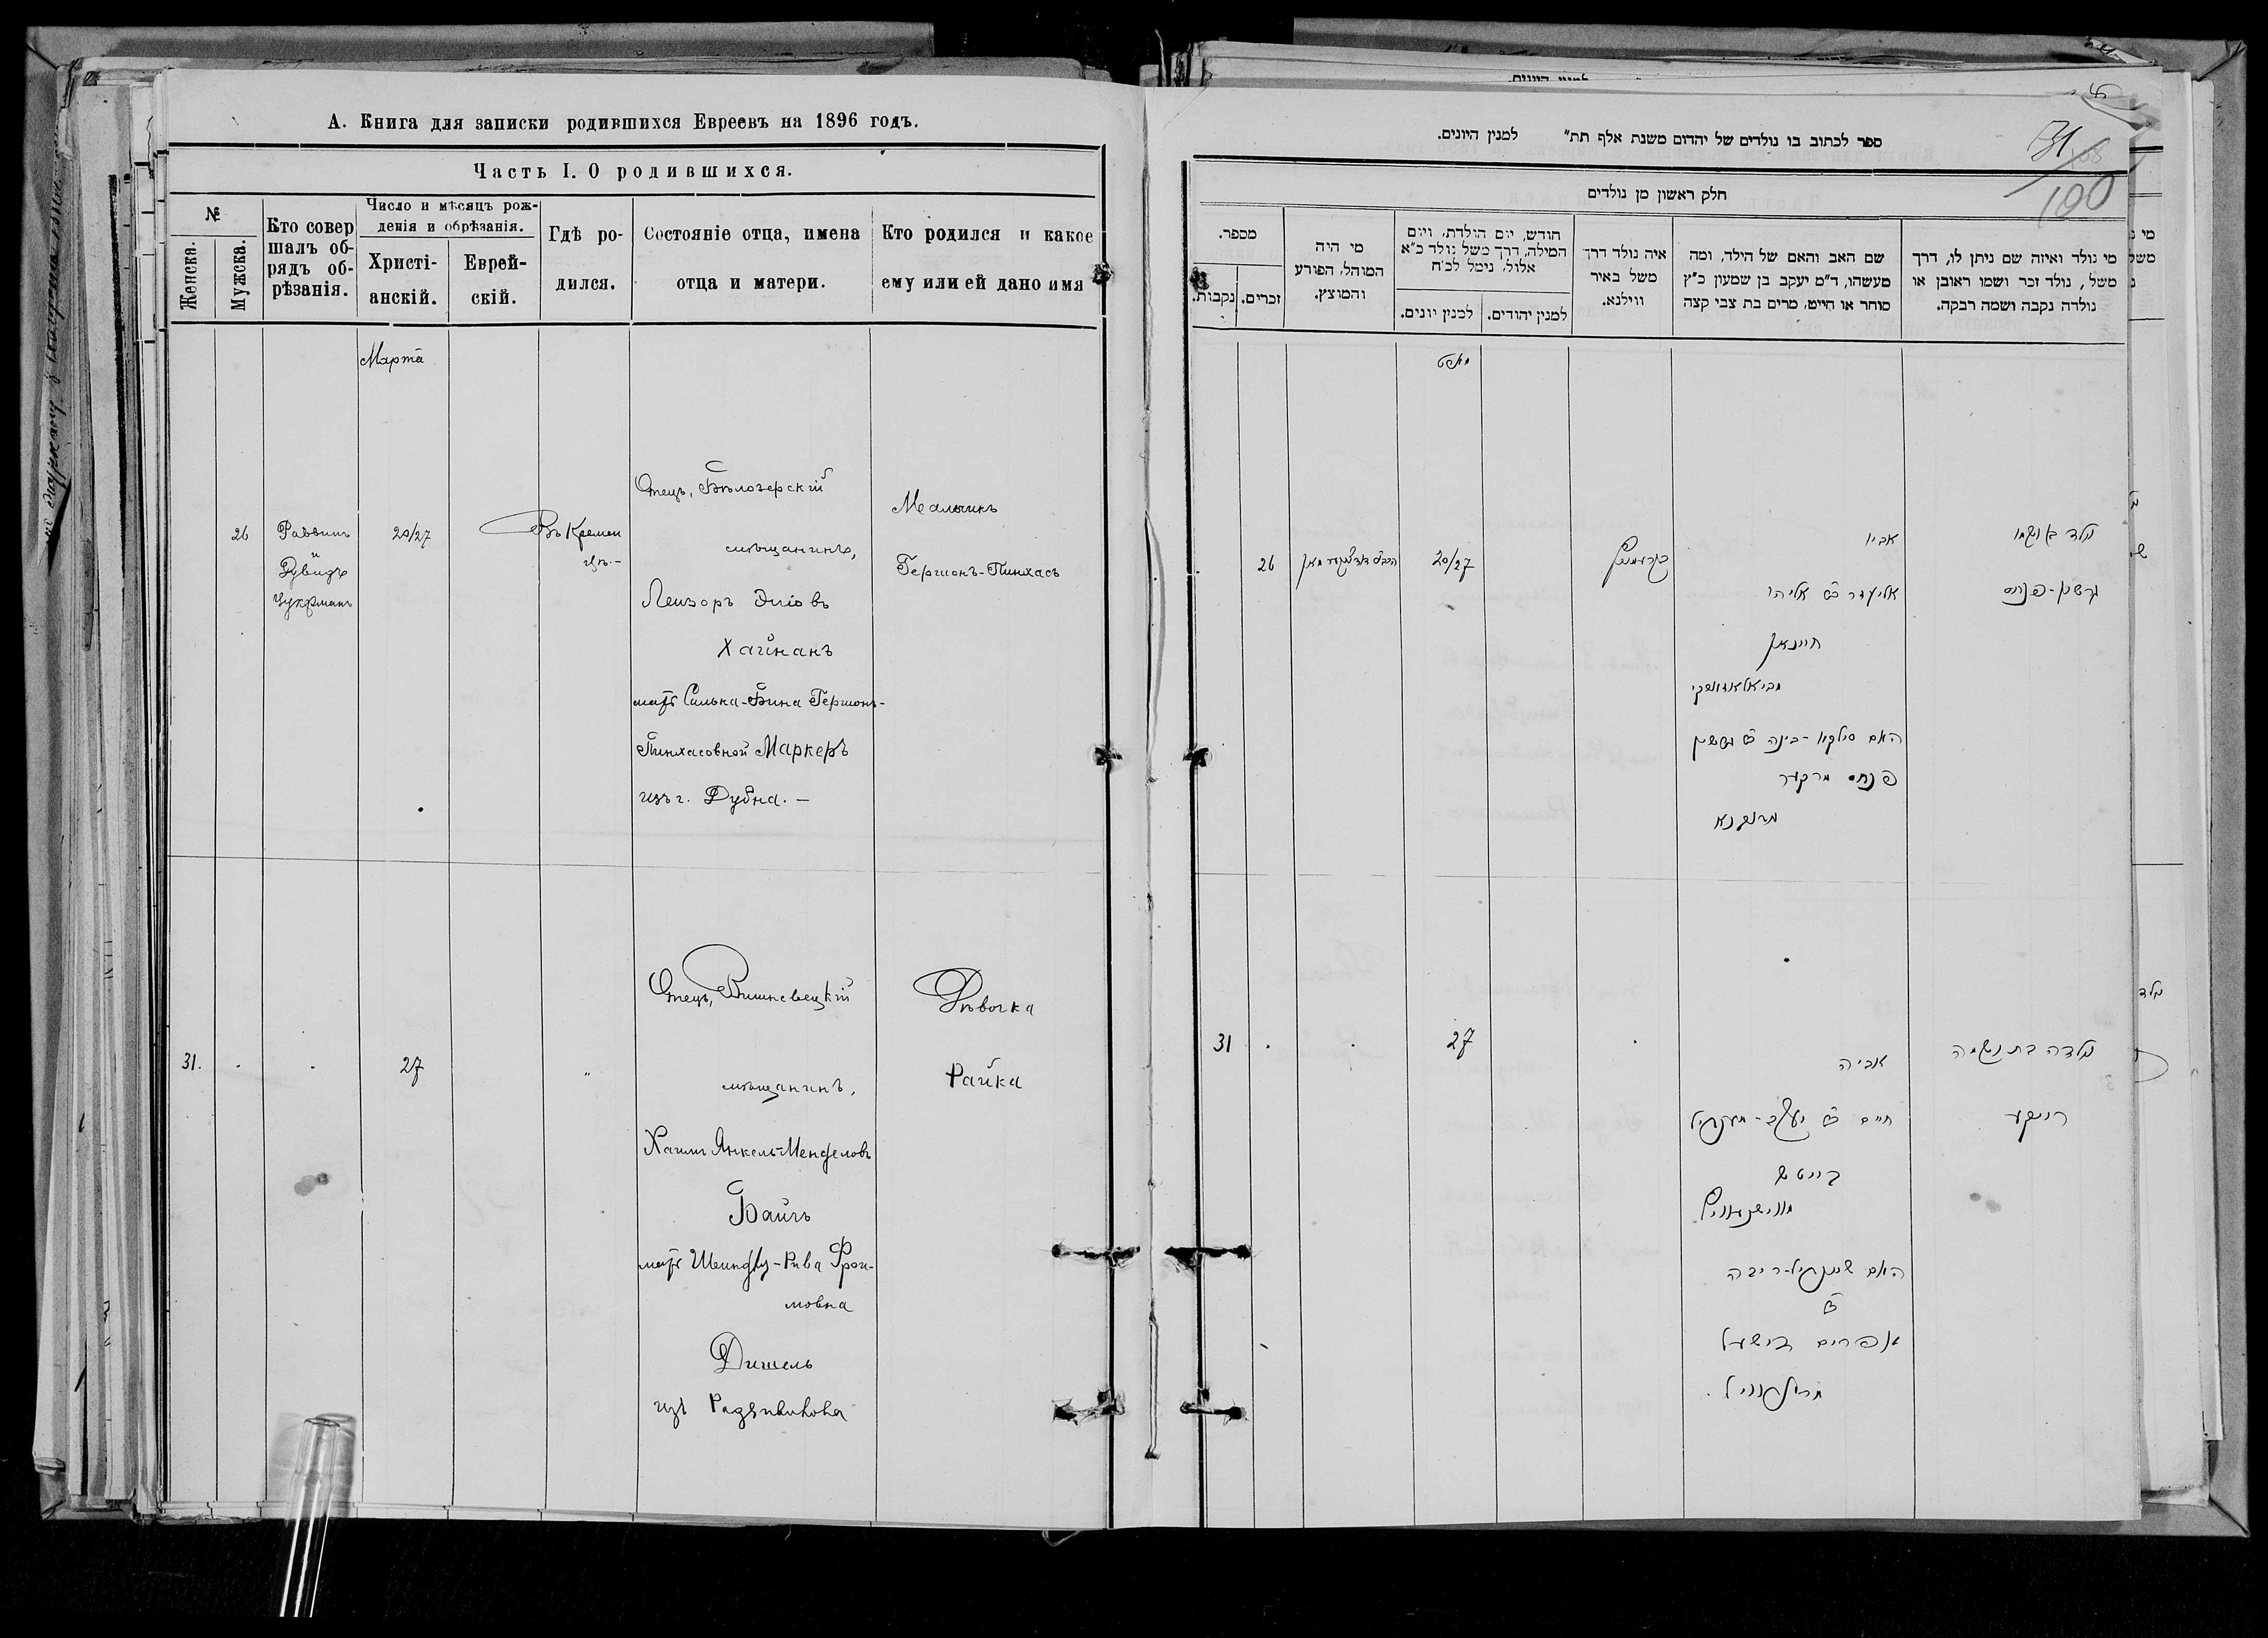 А. Книга для записки родившихся Евреевъ на 1896 годъ.
Часть I. О родившихся.
№
Женска.
Мужска.
Кто совер
шалъ об-
рядъ об-
рѣзанія.
Число и мѣсяцъ рож-
денія и обрѣзанія.
Христі-
анскій.
Еврей-
скій.
Гдѣ ро-
дился.
Состояніе отца, имена
отца и матери.
Кто родился и какое
ему или ей дано имя
Марта
26
Раввинъ
и
Дувидъ
Цукрманъ
20/27
Въ Кремен
цѣ.-
Отецъ, Бѣлозерскій
мѣщанинъ,
Лейзоръ Эліовъ
Хайнанъ
мать Силька-Бина Гершонъ-
Пинхасовной Маркеръ
изъ г. Дубна. —
Мальчикъ
Гершонъ-Пинхасъ
31.
27
"
Отецъ, Вишневецкій
мѣщанинъ,
Хаимъ Янкель-Менделовъ
Байчъ
мать Шейндля-Рива Фрои-
мовна
Дишель
изъ Радзивилова
Дѣвочка
Райка
ספר לכתוב בו נולדים של יהדום משנת אלף תת״ למנין היונים.
100
חלק ראשון מן נולדים
מספר.
נקבות.
זכרים.
מי היה
המוהל, הפורע
והמוצץ.
חודש, יום הולדת, ויום
המילה, דרך משל נולד כ״א
אלול, נימל לכ״ח
למנין יונים.
למנין יהודים.
איה נולד דרך
משל באיר
ווילנא.
שם האב והאם של הילד, ומה
מעשהו, ד״מ יעקב בן שמעון כ״ץ
סוחר או חייט, מרים בת צבי קצה
מי נולד ואיזה שם ניתן לו, דרך
משל, נולד זכר ושמו ראובן או
נולדה נקבה ושמה רבקה.
מארט
26
20/27
אביו
אליעזר ב״ר אליהו
חיינאן
האם סילקא-בינה ב״ר גרשון
פנחס מרקער
מדובנא
נולד בן ושמו
גרשון-פנחס
31
27
אביה
חיים ב״ר יעקב-מענדיל
בייטש
האם שיינדיל-ריבה
ב״ר
אפרים דישעל
נולדה בת ושמה
רייקע